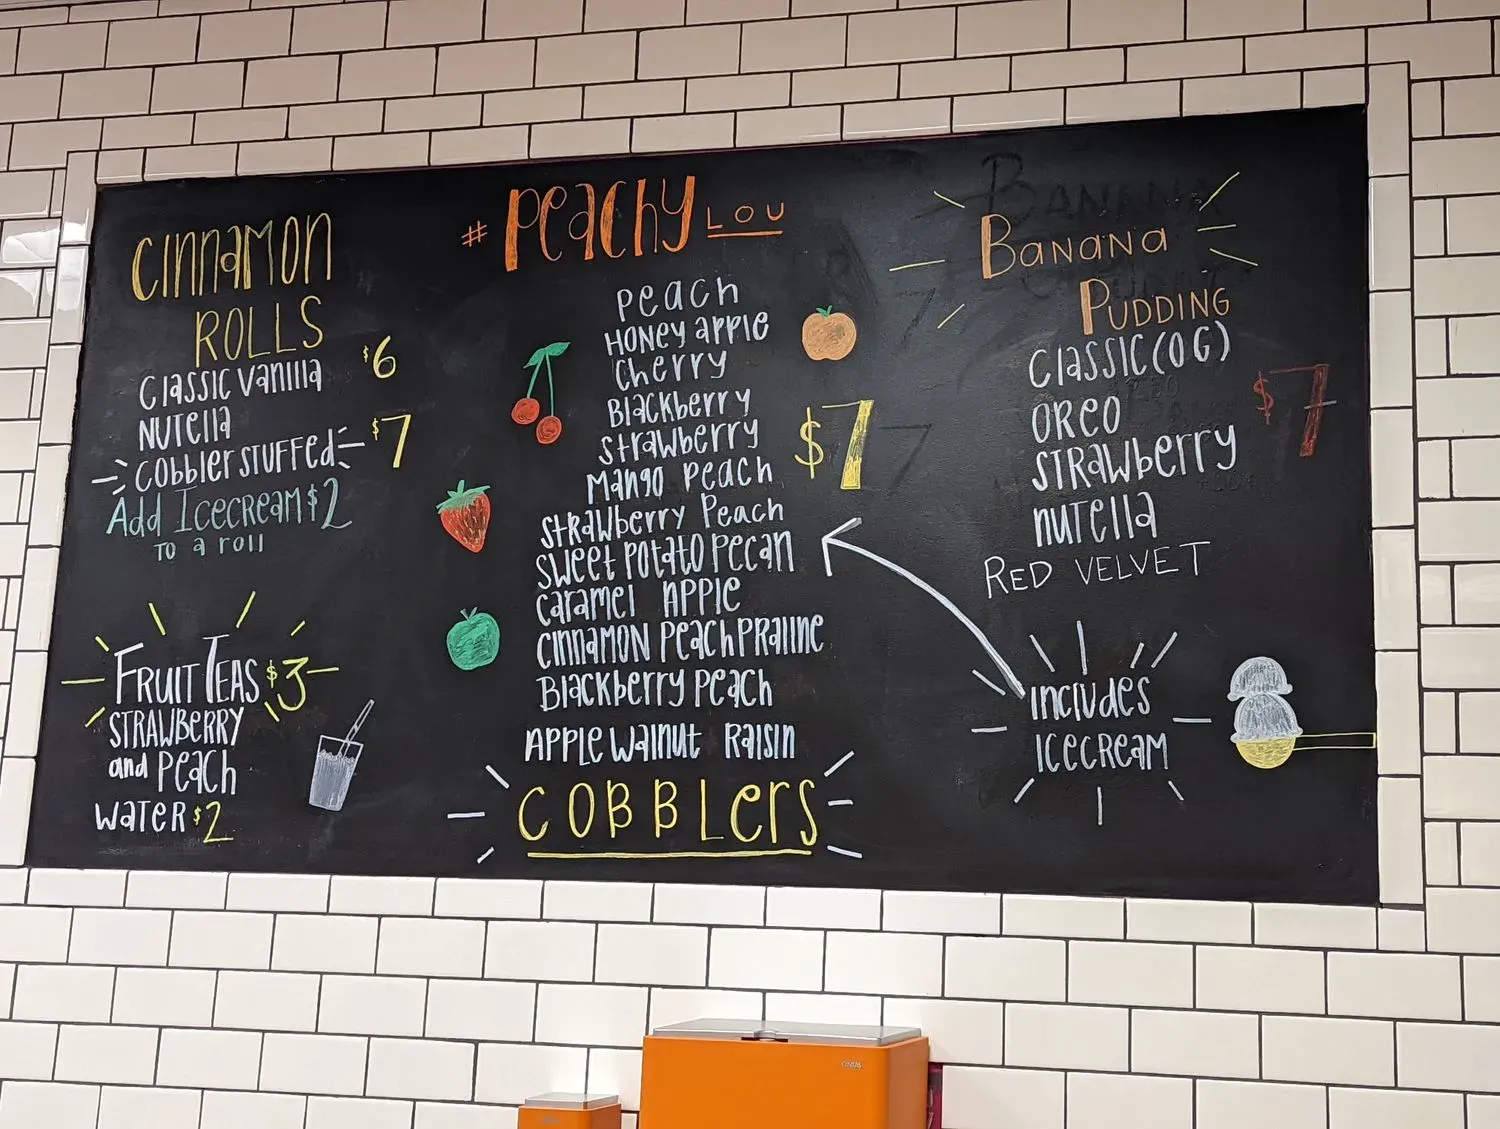 CINNAMON
ROLLS
Classic Vanilla $6
Nutella
Cobbler Stuffed $7
Add Icecream $2
to a roll
Fruit Teas $3
Strawberry
and Peach
Water $2
# PEACHY LOU
Peach
Honey apple
Cherry
Blackberry
Strawberry
$7
Mango Peach
Strawberry Peach
Sweet Potato Pecan
Caramel Apple
Cinnamon Peach Praline
Blackberry Peach
Apple Walnut Raisin
COBBLers
Banana
Pudding
Classic (OG)
$7
Oreo
Strawberry
Nutella
Red Velvet
Includes
Icecream
CINTAS